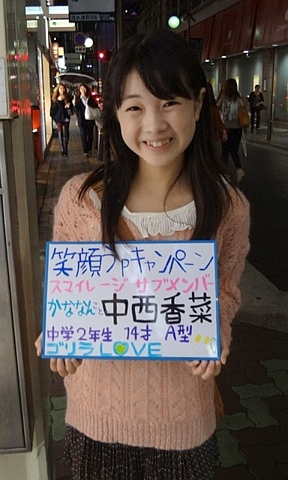 笑顔UPキャンペーン
スマイレージ サブメンバー
かななんこと中西香菜
中学2年生 14才 A型
ゴリラ LOVE